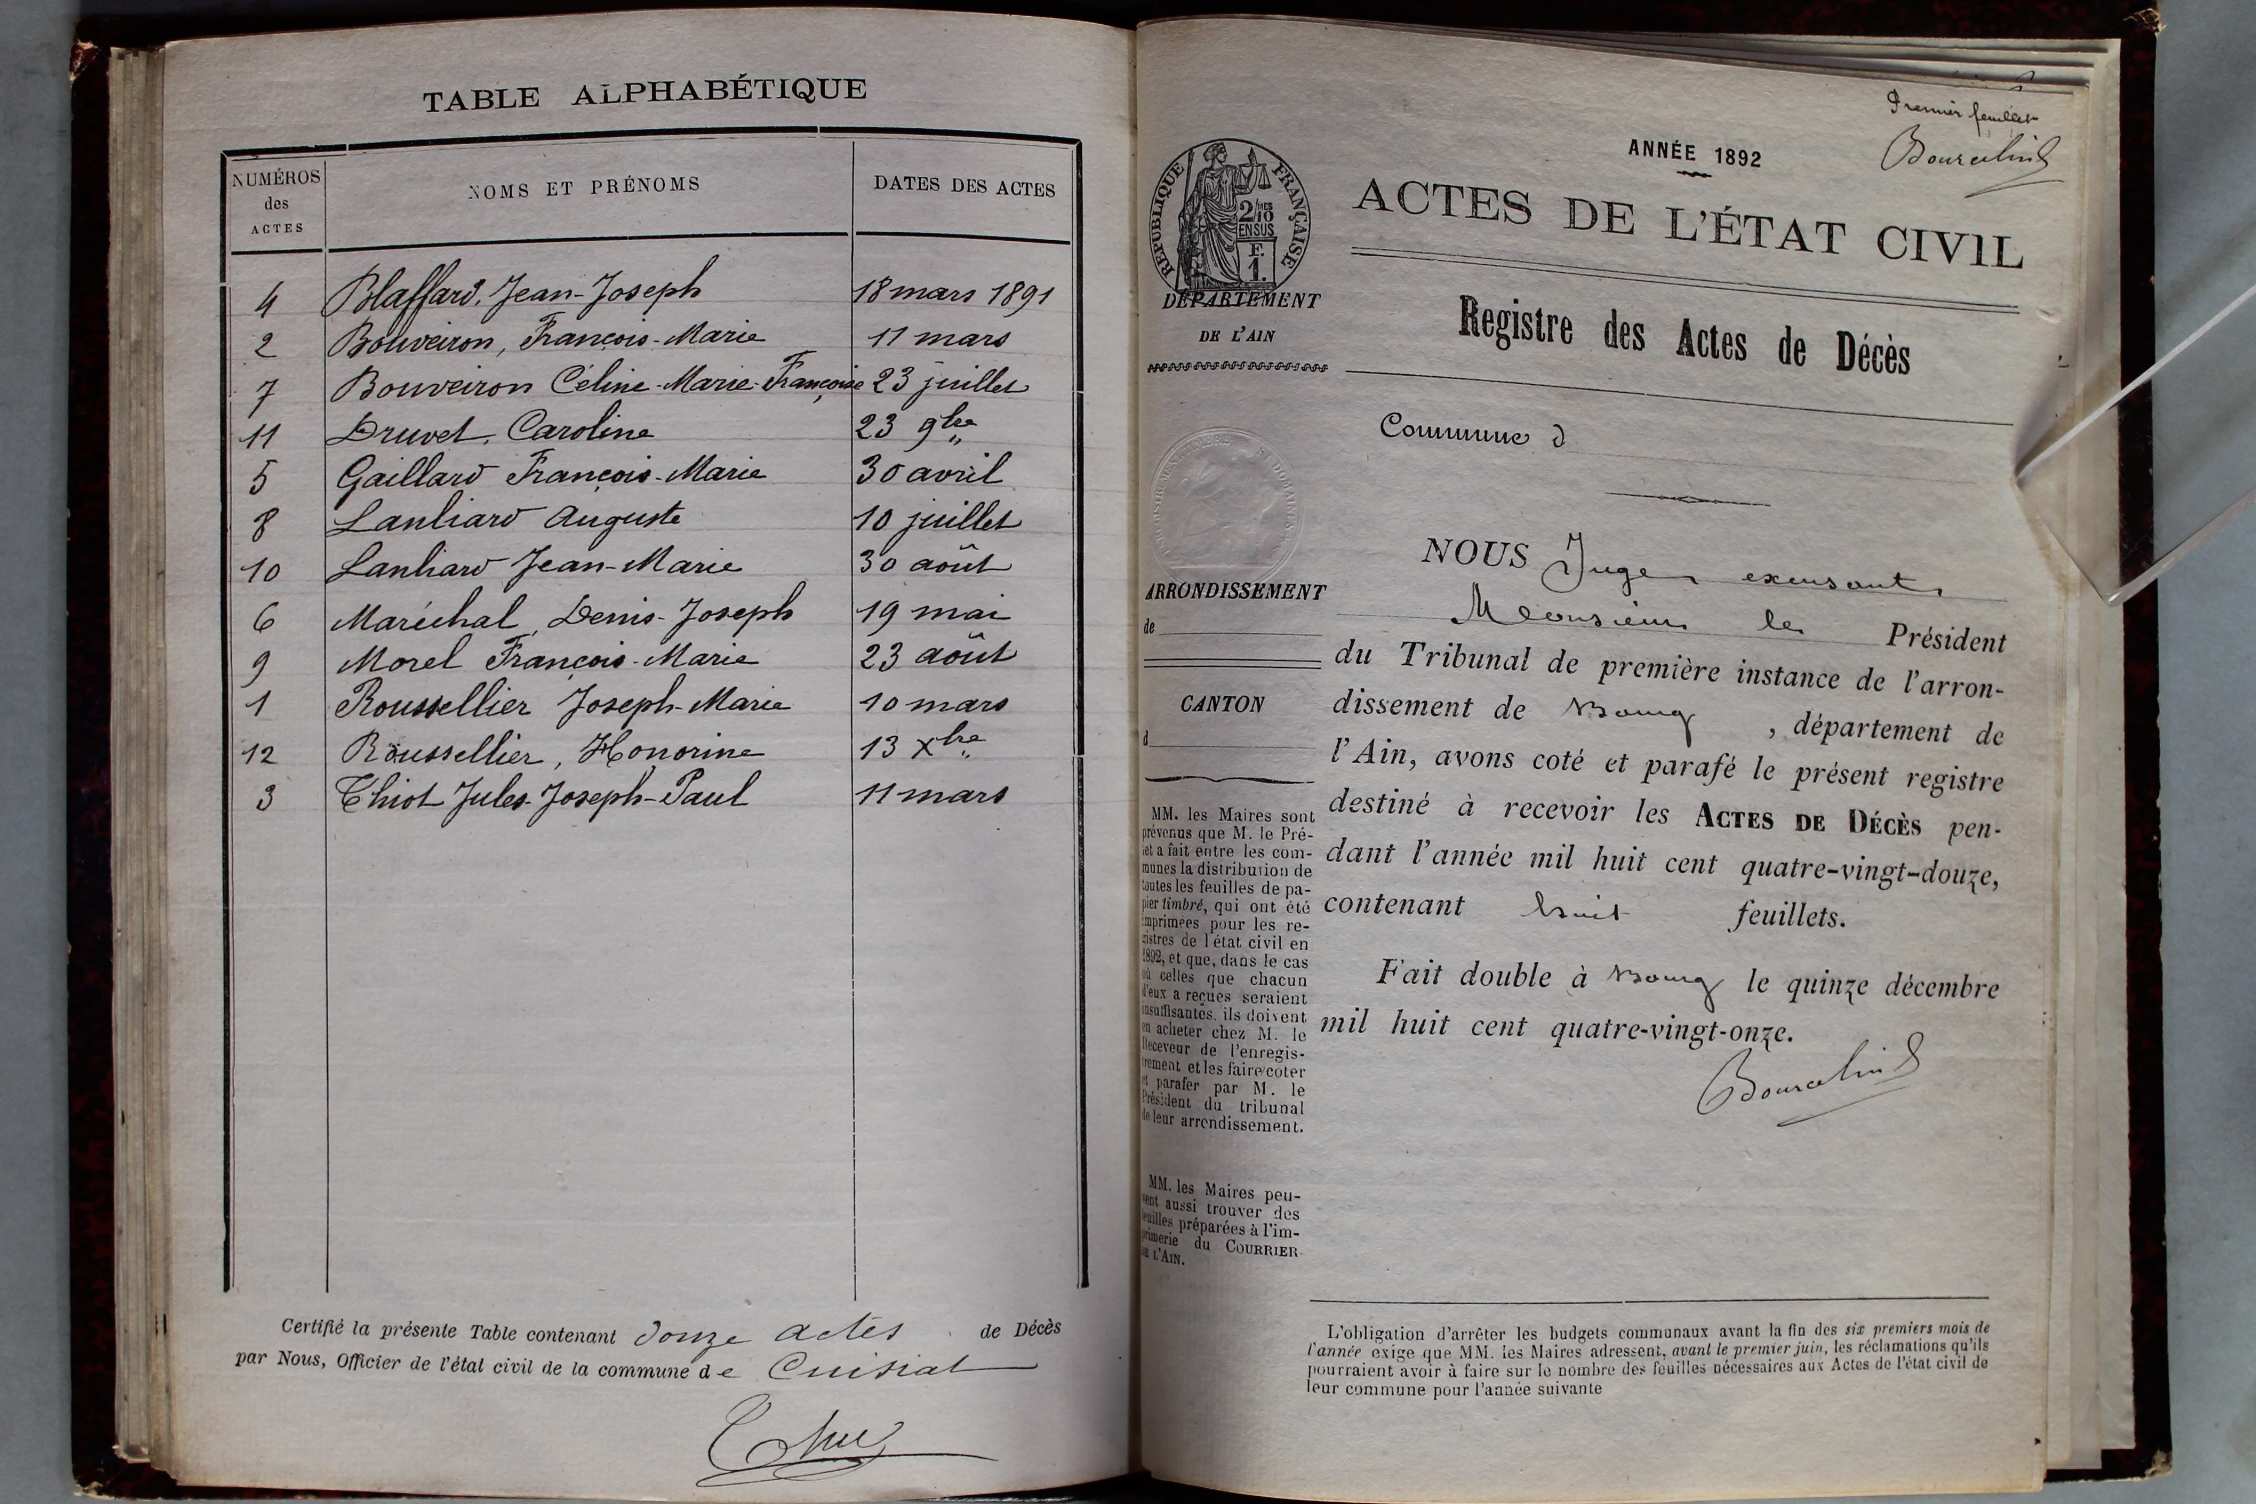 TABLE ALPHABÉTIQUE
NUMÉROS des ACTES
NOMS ET PRÉNOMS
DATES DES ACTES
4 Blaffard, Jean-Joseph 18 mars 1891
2 Bouveiron, François-Marie 11 mars
7 Bouveiron Céline-Marie-Françoise 23 juillet
11 Druvet, Caroline 23 9bre
5 Gaillard François-Marie 30 avril
8 Lanliard Auguste 10 juillet
10 Lanliard Jean-Marie 30 août
6 Maréchal, Denis-Joseph 19 mai
9 Morel François-Marie 23 août
1 Roussellier Joseph-Marie 10 mars
12 Roussellier, Honorine 13 Xbre
3 Thiot Jules-Joseph-Paul 11 mars
Certifié la présente Table contenant douze actes de Décès
par Nous, Officier de l'état civil de la commune de Cuisiat
Premier feuillet
ANNÉE 1892
ACTES DE L'ÉTAT CIVIL
Registre des Actes de Décès
Commune d
RÉPUBLIQUE FRANÇAISE
2/10MES
EN SUS
F.
1.
DÉPARTEMENT
DE L'AIN
ARRONDISSEMENT
de
CANTON
d
MM. les Maires sont
prévenus que M. le Pré-
fet a fait entre les com-
munes la distribution de
toutes les feuilles de pa-
pier timbré, qui ont été
imprimées pour les re-
gistres de l'état civil en
1892, et que, dans le cas
où celles que chacun
d'eux a reçues seraient
insuffisantes, ils doivent
en acheter chez M. le
Receveur de l'enregis-
trement et les faire coter
et parafer par M. le
Président du tribunal
de leur arrondissement.
MM. les Maires peu-
vent aussi trouver des
feuilles préparées à l'im-
primerie du COURRIER
DE L'AIN.
NOUS Juge excusant
Monsieur le Président
du Tribunal de première instance de l'arron-
dissement de Bourg, département de
l'Ain, avons coté et parafé le présent registre
destiné à recevoir les ACTES DE DÉCÈS pen-
dant l'année mil huit cent quatre-vingt-douze,
contenant huit feuillets.
Fait double à Bourg le quinze décembre
mil huit cent quatre-vingt-onze.
L'obligation d'arrêter les budgets communaux avant la fin des six premiers mois de
l'année exige que MM. les Maires adressent, avant le premier juin, les réclamations qu'ils
pourraient avoir à faire sur le nombre des feuilles nécessaires aux Actes de l'état civil de
leur commune pour l'année suivante